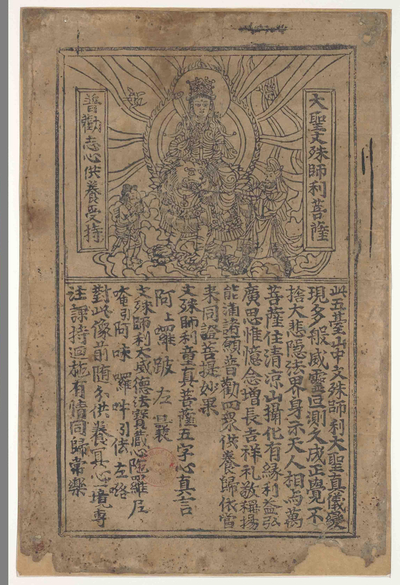 大聖文殊師利菩薩
普勸志心供養受持
此五臺山中文殊師利大聖真儀變
現多般威靈叵測久成正覺不
捨大悲隱法界身示天人相与萬
菩薩住清涼山攝化有緣利益弘
廣思惟憶念增長吉祥礼敬稱揚
能滿諸願普勸四眾供養歸依當
來同證菩提妙果
文殊師利童真菩薩五字心真言
阿上囉跛左曩
文殊師利大威德法寶藏心陁羅尼
唵引阿味囉吽引佉左
對此像前隨分供養冥心一境專
注課持迴施有情同歸常樂